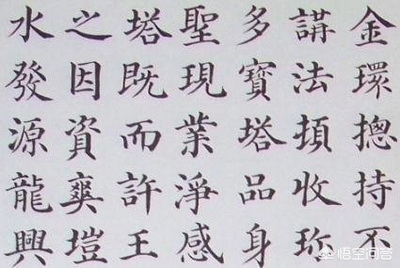 金環摠持不
講法頓收珎
多寶塔品身
聖現業淨感
塔既而許王
之因資爽塏
水發源龍興
悟空问答